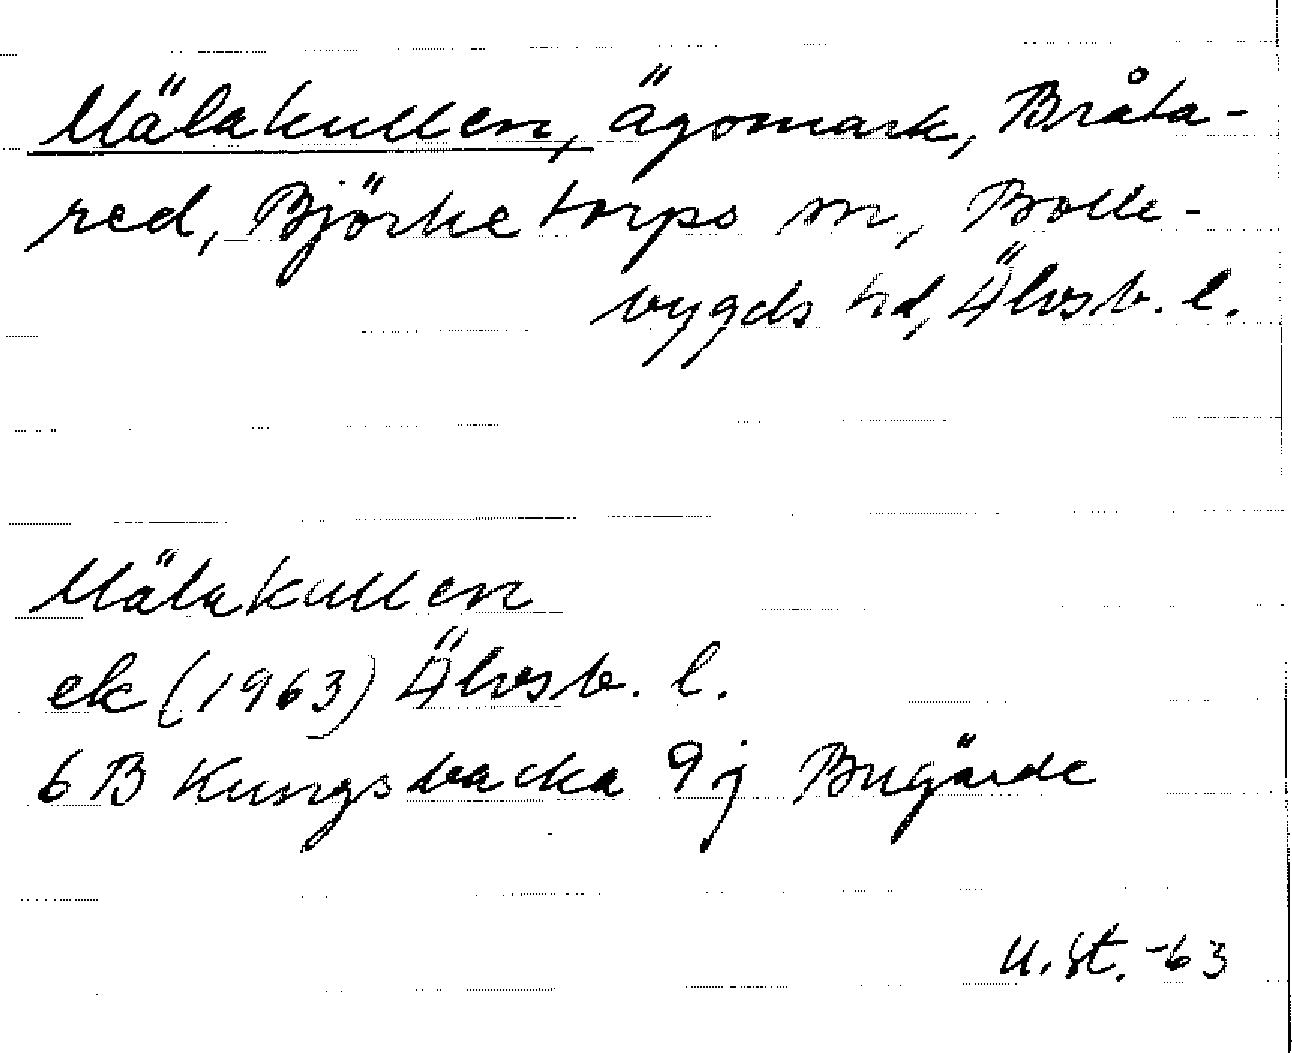 Mälakullen, ägomark, Bråta-
red, Björketorps sn, Bolle-
bygds hd, Älvsb. l.
Mälakullen
ek (1963) Älvsb. l.
6 B Kungsbacka 9 j Bugärde
U. St. -63